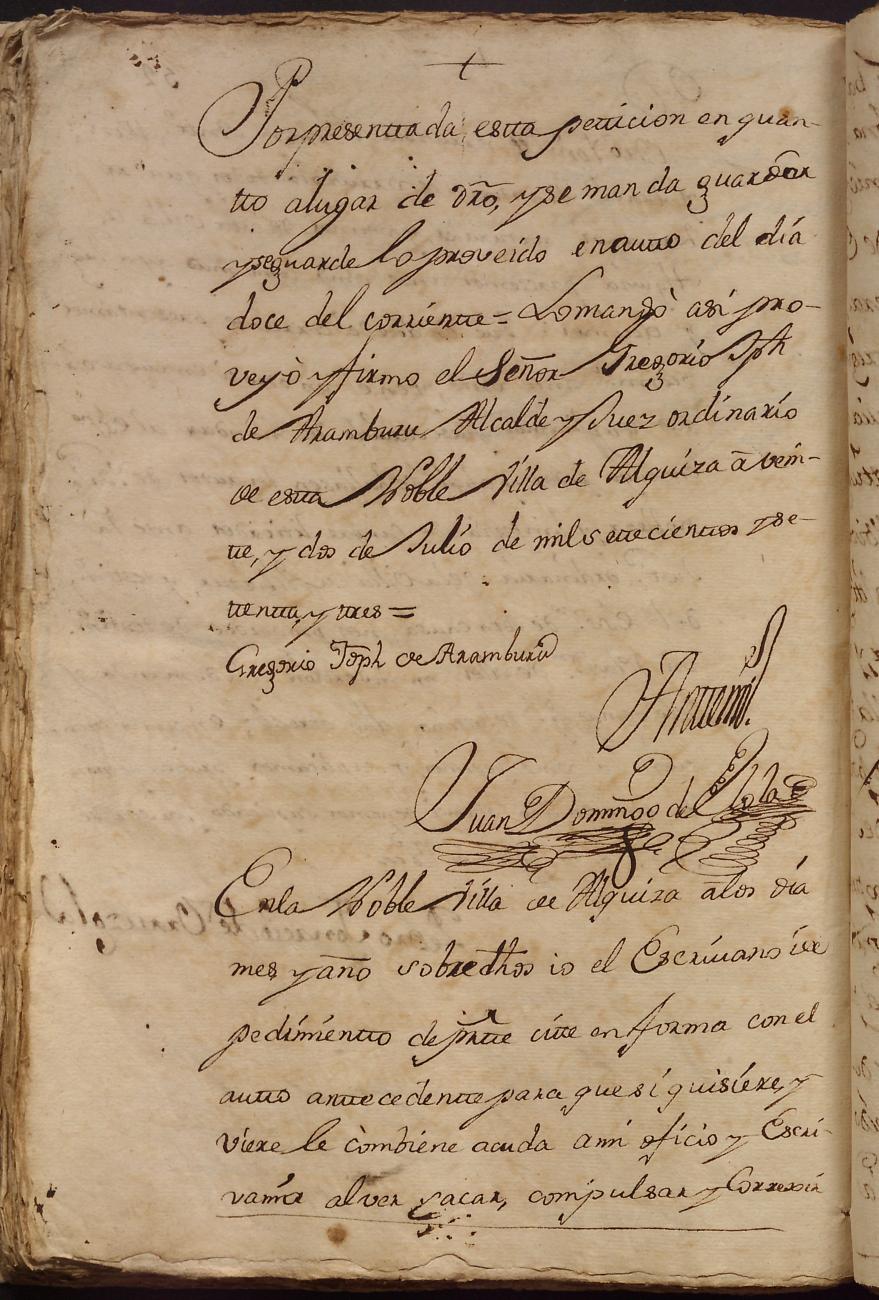 +
Por presenttada estta petticion en quan-
tto alugar de dr̃o, y se manda guardar
y se guarde lo proveido en autto del dia
doce del corriente = Lo mandò así pro-
veyò y firmo el Señor Gregorio Jph
de Aramburu Alcalde y Juez ordinario
de estta Noble Villa de Alquiza à vein-
tte, y dos de Julio de mil settecienttos y se-
ttentta y ttres =
Gregorio Joph de Aramburu
Anttemi
Juan Domingo de
En la Noble Villa de Alquiza a los dia
mes y año sobre dhos io el Escrivano de
pedimientto de partte citte en forma con el
autto anttecedentte para que si quisiere, y
viere le combiene acuda a mi oficio y Escri-
vania al ver sacar, compulsar y Correxir